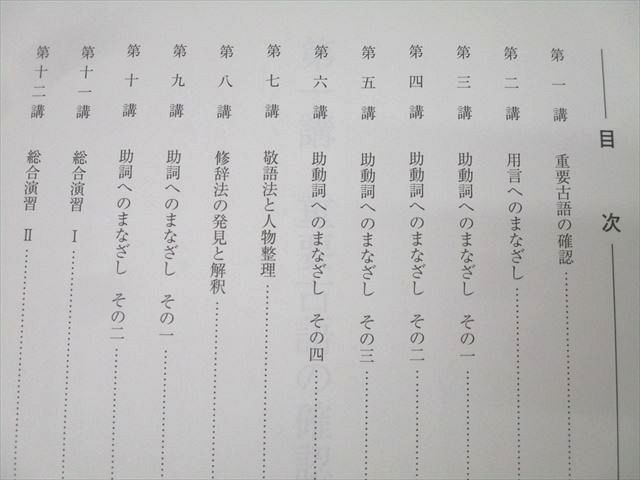 目次
第一講 重要古語の確認
第二講 用言へのまなざし
第三講 助動詞へのまなざし その一
第四講 助動詞へのまなざし その二
第五講 助動詞へのまなざし その三
第六講 助動詞へのまなざし その四
第七講 敬語法と人物整理
第八講 修辞法の発見と解釈
第九講 助詞へのまなざし その一
第十講 助詞へのまなざし その二
第十一講 総合演習 Ⅰ
第十二講 総合演習 Ⅱ